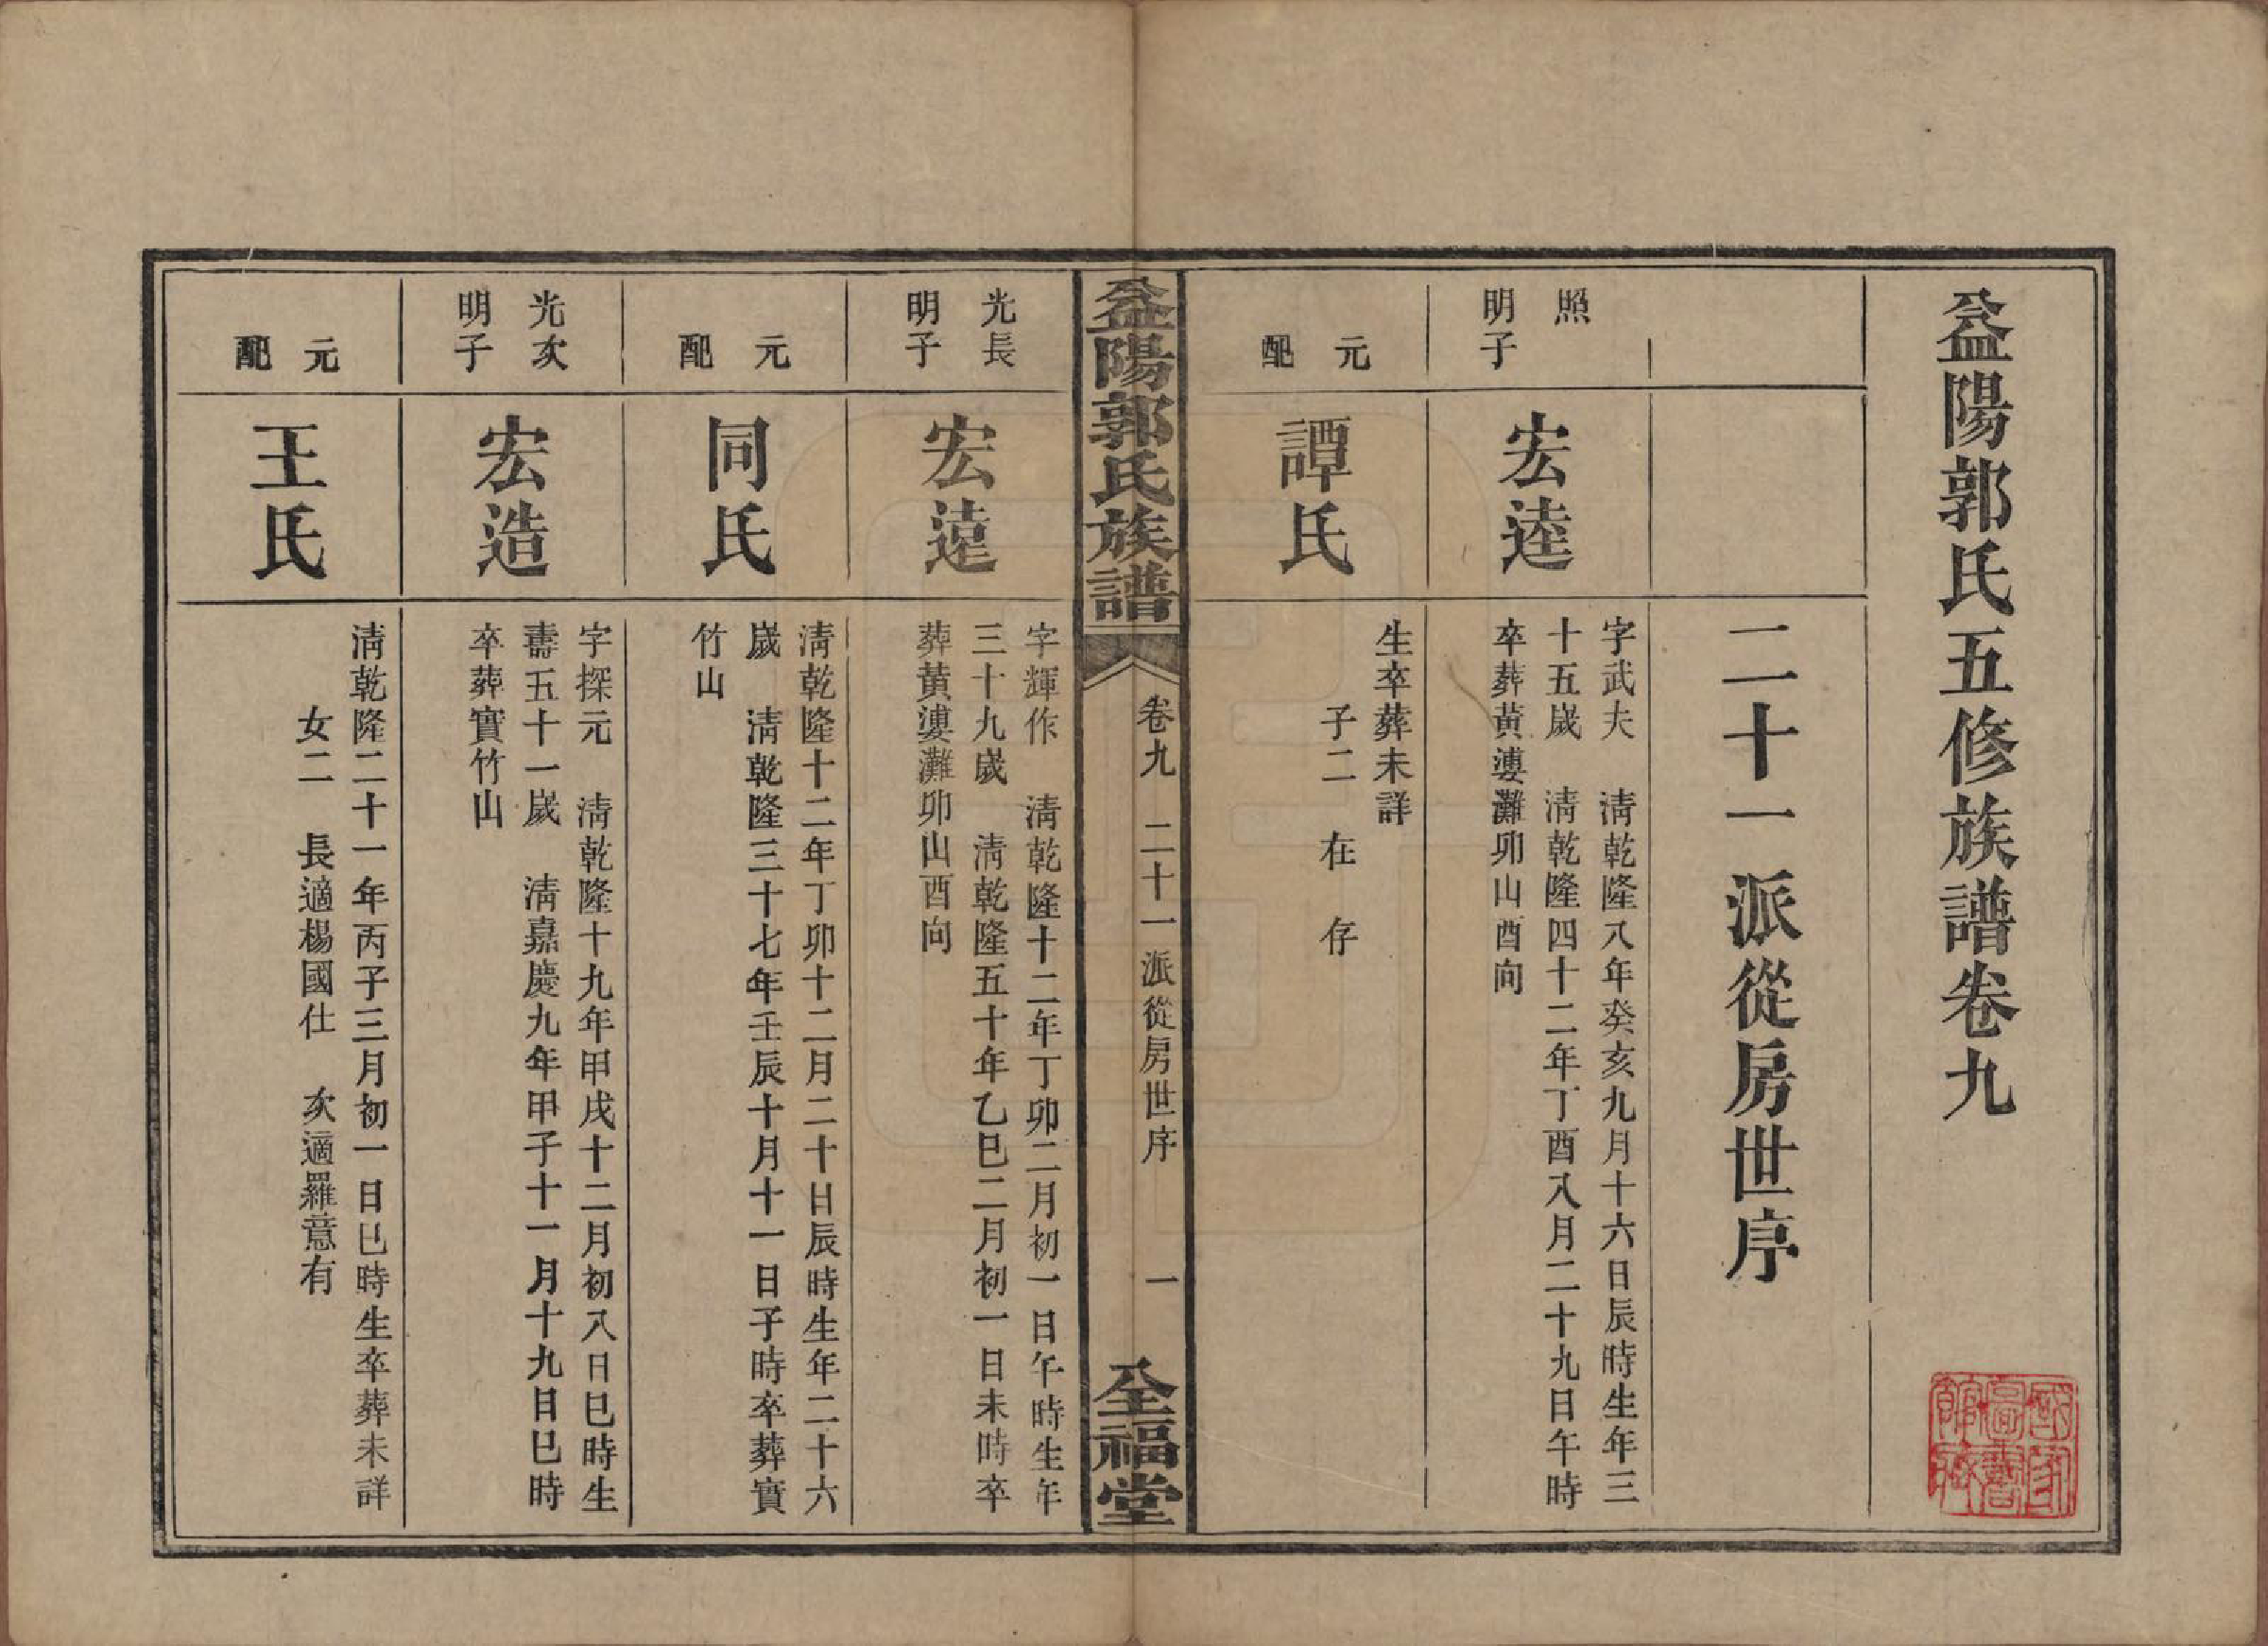 益陽郭氏五修族譜卷九
二十一派從房世序
照
明子
宏逵
字武夫　淸乾隆八年癸亥九月十六日辰時生年三
十五歲　淸乾隆四十二年丁酉八月二十九日午時
卒葬黃漊灘卯山酉向
元
配
譚氏
生卒葬未詳
子二　在　存
益陽郭氏族譜
卷九　二十一派從房世序
一
全福堂
光長
明子
宏遠
字輝作　淸乾隆十二年丁卯二月初一日午時生年
三十九歲　淸乾隆五十年乙巳二月初一日未時卒
葬黃漊灘卯山酉向
元
配
同氏
淸乾隆十二年丁卯十二月二十日辰時生年二十六
歲　淸乾隆三十七年壬辰十月十一日子時卒葬實
竹山
光次
明子
宏造
字探元　淸乾隆十九年甲戌十二月初八日巳時生
壽五十一歲　淸嘉慶九年甲子十一月十九日巳時
卒葬實竹山
元
配
王氏
淸乾隆二十一年丙子三月初一日巳時生卒葬未詳
女二　長適楊國仕　次適羅意有
國家
圖書
館藏